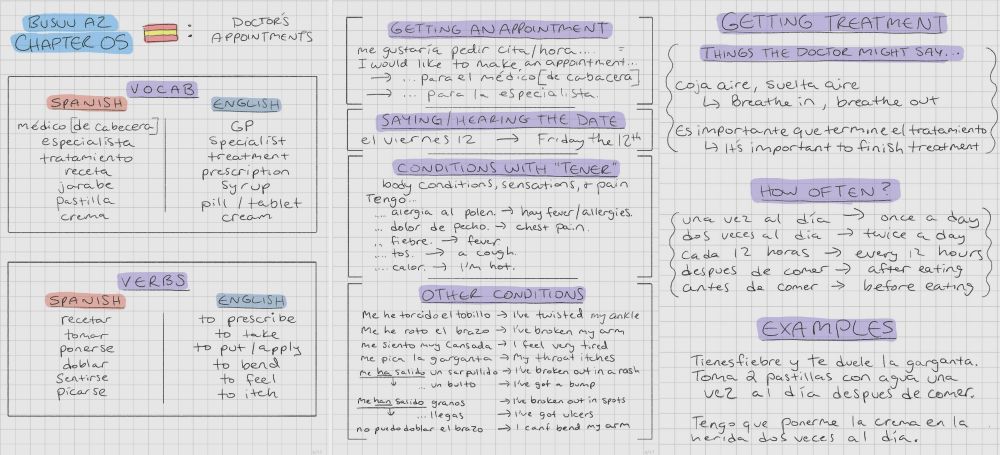 BUSUU A2
CHAPTER 05
: DOCTOR'S APPOINTMENTS
VOCAB
SPANISH ENGLISH
médico [de cabecera] GP
especialista specialist
tratamiento treatment
receta prescription
jarabe syrup
pastilla pill / tablet
crema cream
VERBS
SPANISH ENGLISH
recetar to prescribe
tomar to take
ponerse to put / apply
doblar to bend
sentirse to feel
picarse to itch
GETTING AN APPOINTMENT
me gustaría pedir cita/hora.... =
I would like to make an appointment...
→ ... para el médico [de cabacera]
→ ... para la especialista.
SAYING/HEARING THE DATE
el viernes 12 → Friday the 12th
CONDITIONS WITH "TENER"
body conditions, sensations, + pain
Tengo...
... alergia al polen. → hay fever/allergies.
... dolor de pecho. → chest pain.
... fiebre. → fever
... tos. → a cough.
... calor. → I'm hot.
OTHER CONDITIONS
Me he torcido el tobillo → I've twisted my ankle
Me he roto el brazo → I've broken my arm
Me siento muy cansada → I feel very tired
Me pica la garganta → My throat itches
Me ha salido un sarpullido → I've broken out in a rash
↓ ... un bulto → I've got a bump
Me han salido granos → I've broken out in spots
↓ ... llegas → I've got ulcers
no puedo doblar el brazo → I can't bend my arm
GETTING TREATMENT
THINGS THE DOCTOR MIGHT SAY...
coja aire, suelta aire
↳ Breathe in, breathe out
Es importante que termine el tratamiento
↳ It's important to finish treatment
HOW OFTEN?
una vez al día → once a day
dos veces al dia → twice a day
cada 12 horas → every 12 hours
despues de comer → after eating
antes de comer → before eating
EXAMPLES
Tienes fiebre y te duele la garganta.
Toma 2 pastillas con agua una
vez al día despues de comer.
Tengo que ponerme la crema en la
herida dos veces al día.